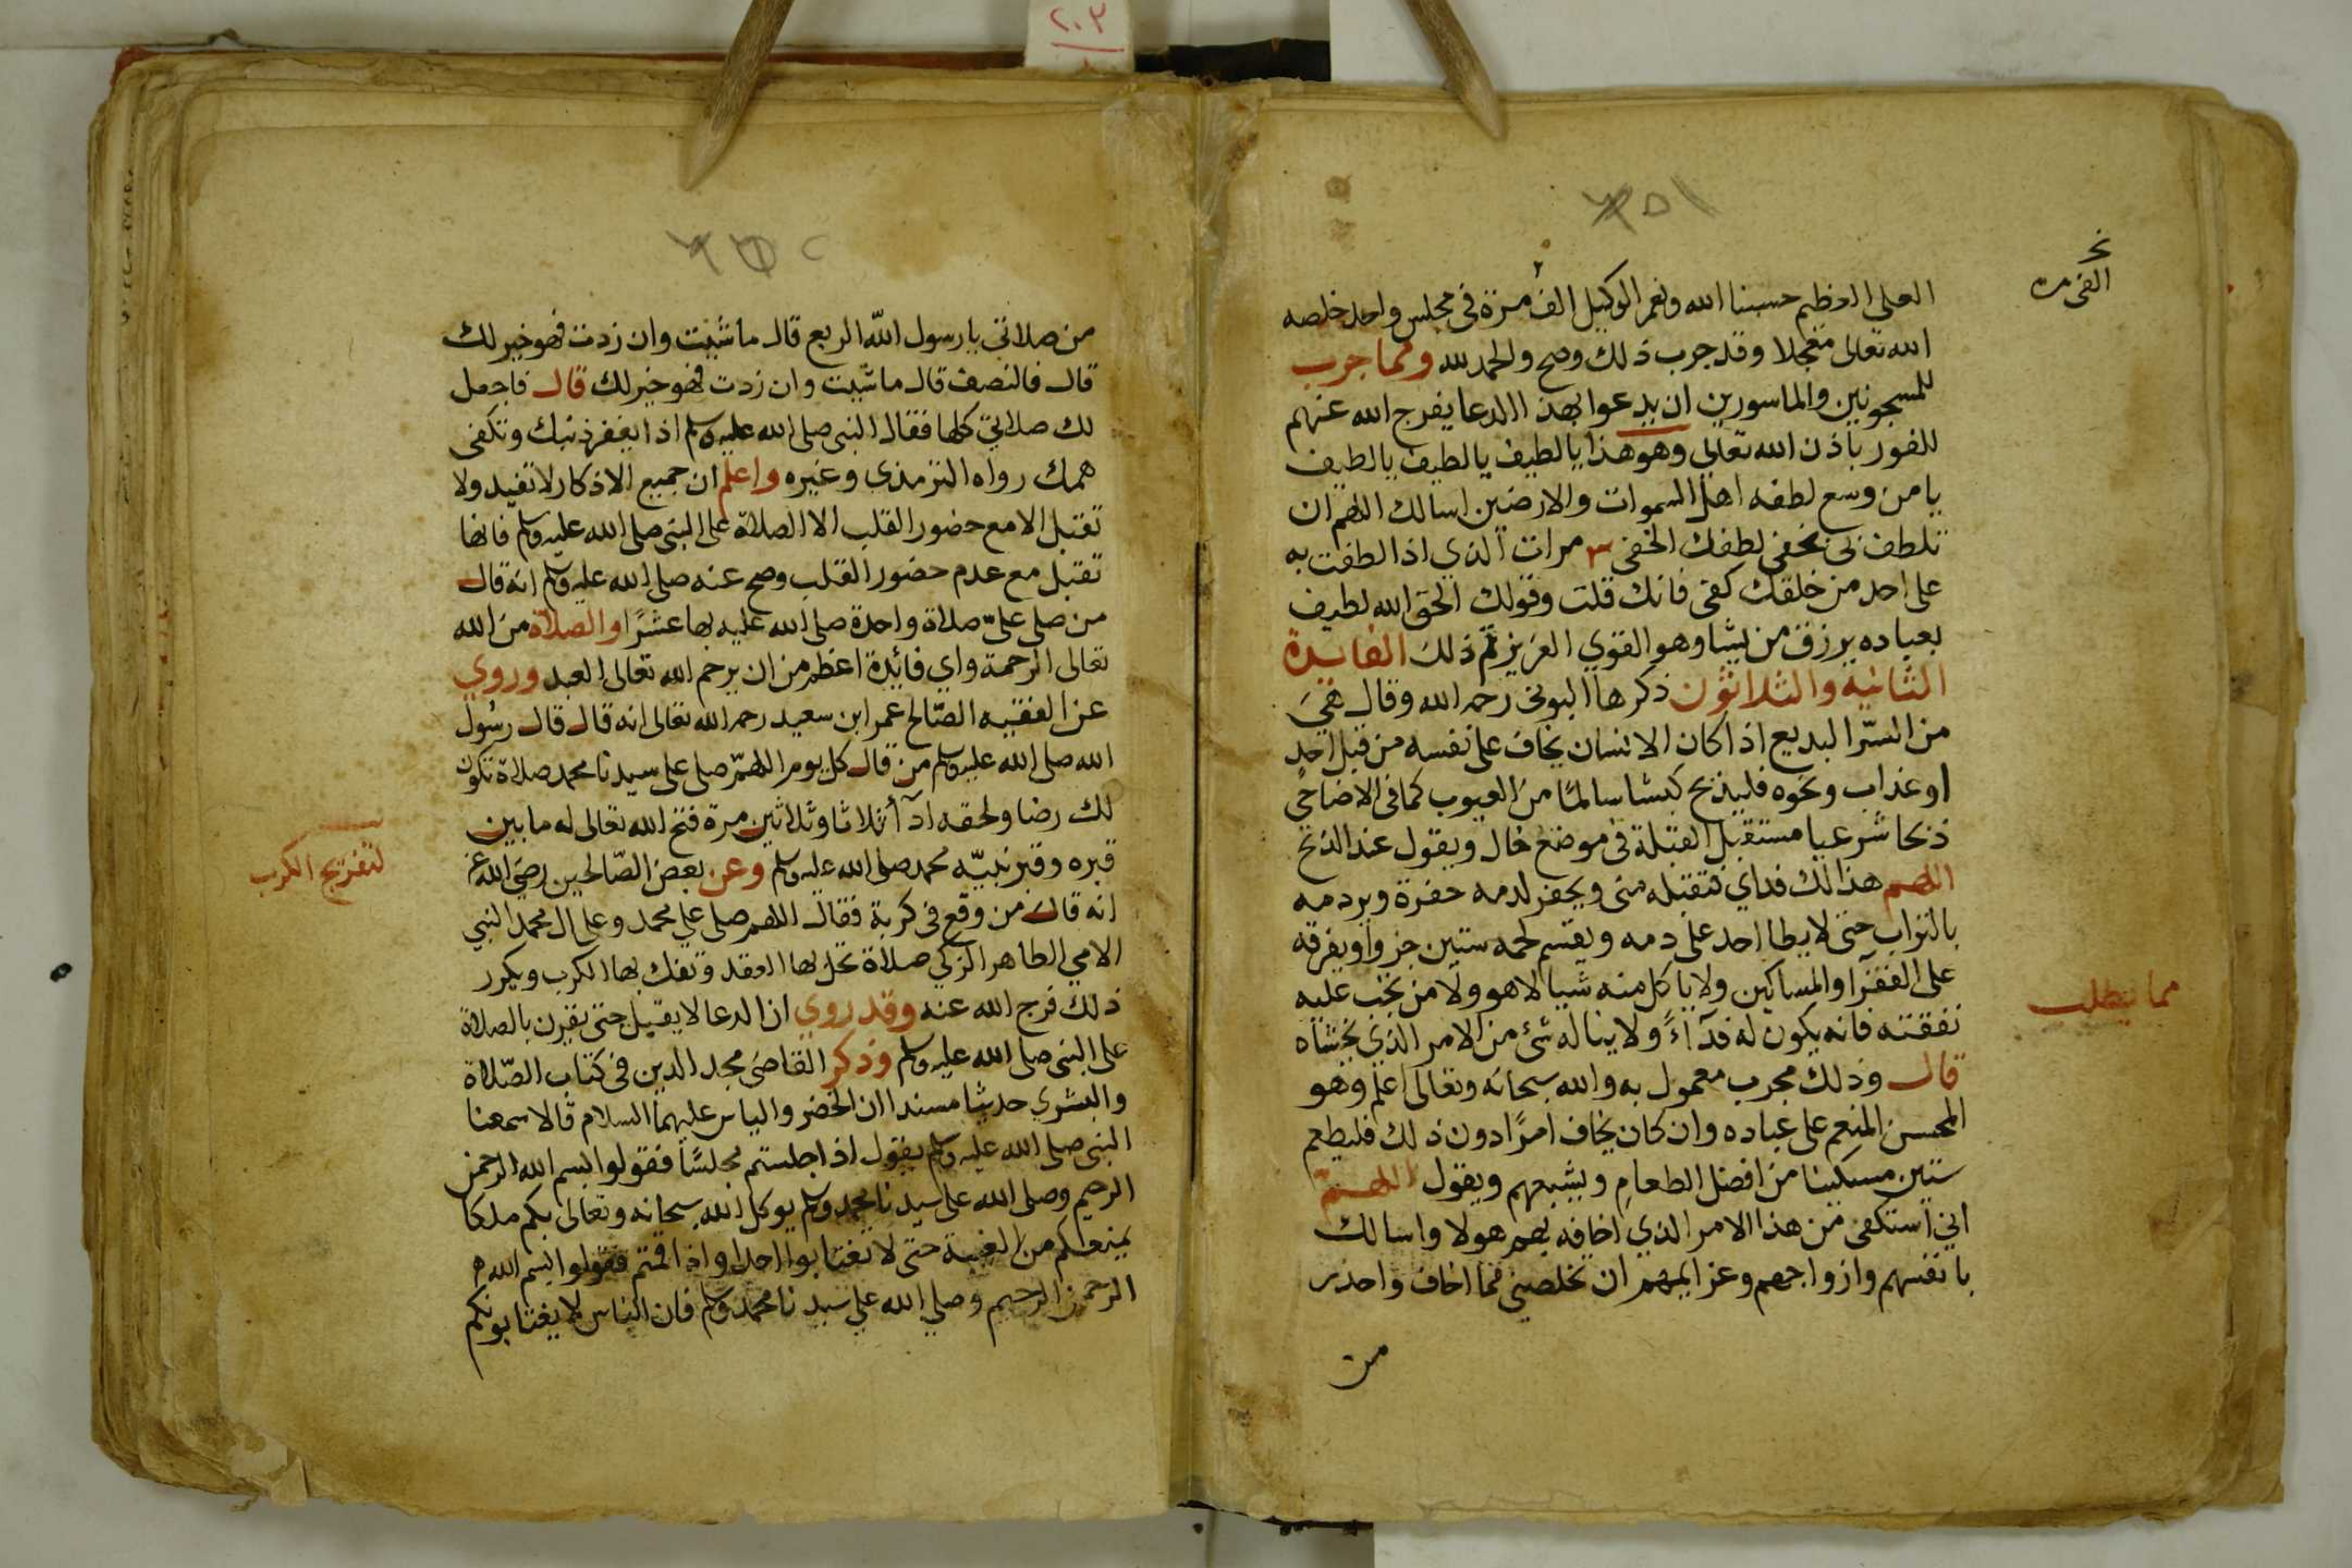 ٢٠٣
٢٥١
نخـ
الفى مره
العلى العظيم حسبنا الله ونعم الوكيل الف مرة فى مجلس واحد خلصه
الله تعالى معجلا وقد جرب ذلك وصح والحمد لله ومما جرب
للمسجونين والماسورين ان يدعوا بهذا الدعا يفرج الله عنهم
للفور باذن الله تعالى وهو هذا يا لطيف يا لطيف يا لطيف
يا من وسع لطفه اهل السموات والارضين اسالك اللهم ان
تلطف بى بخفى لطفك الخفى ٣ مرات الذي اذا لطفت به
على احد من خلقك كفى فانك قلت وقولك الحق الله لطيف
بعباده يرزق من يشا وهو القوي العزيز تم ذلك الفايدة
الثانية والثلاثون ذكرها البونى رحمه الله وقال هي
من السرّ البديع اذا كان الانسان يخاف على نفسه من قبل احد
او عذاب ونحوه فليذبح كبشا سالمًا من العيوب كما فى الاضاحي
ذبحا شرعيا مستقبل القبلة فى موضع خال ويقول عند الذبح
اللهم هذا لك فداي فتقبله منى ويحفر لدمه حفرة ويردمه
بالتراب حتى لا يطا احد على دمه ويقسم لحمه ستين جزوا ويفرقه
على الفقرآ والمساكين ولا ياكل منه شيا لا هو ولا من يجب عليه
نفقته فانه يكون له فدآءً ولا يناله شئ من الامر الذي يخشاه
مما يطلب
قال وذلك مجرب معمول به والله سبحانه وتعالى اعلم وهو
المحسن المنعم على عباده وان كان يخاف امرًا دون ذلك فليطعم
ستين مسكينا من افضل الطعام ويشبعهم ويقول اللهم
اني استكفى من هذا الامر الذي اخافه بهم هولا واسالك
بانفسهم وازواجهم وعزايمهم ان تخلصنى مما اخاف واحذر
من
٢٥٢
من صلاتى يا رسول الله الربع قال ما شئت وان زدت فهو خير لك
قال فالنصف قال ما شيت وان زدت فهو خير لك قال فاجعل
لك صلاتي كلها فقال النبى صلى الله عليه وسلم اذا يغفر ذنبك وتكفى
همك رواه الترمذى وغيره واعلم ان جميع الاذكار لا تفيد ولا
تقبل الا مع حضور القلب الا الصلاة على النبى صلى الله عليه وسلم فانها
تقبل مع عدم حضور القلب وصح عنه صلى الله عليه وسلم انه قال
من صلى علىّ صلاة واحدة صلى الله عليه بها عشرًا والصلاة من الله
تعالى الرحمة واي فائدة اعظم من ان يرحم الله تعالى العبد وروي
عن الفقيه الصّالح عمر ابن سعيد رحمه الله تعالى انه قال قال رسول
الله صلى الله عليه وسلم من قال كل يوم اللهمّ صلى على سيدنا محمد صلاة تكون
لك رضا ولحقه ادآ ثلاثا وثلاثين مرة فتح الله تعالى له ما بين
قبره وقبر نبيّه محمد صلى الله عليه وسلم وعن بعض الصّالحين رضي الله عنه
لتفريج الكرب
انه قال من وقع فى كربة فقال اللهم صلى على محمد وعلى ال محمد النبي
الامي الطاهر الزكي صلاة تحل بها العقد وتفك بها الكرب ويكرر
ذلك فرج الله عنه وقد روي ان الدعا لا يقبل حتى يقرن بالصلاة
على النبى صلى الله عليه وسلم وذكر القاضي مجد الدين فى كتاب الصّلاة
والبشري حديثا مسندا ان الخضر والياس عليهما السلام قالا سمعنا
النبى صلى الله عليه وسلم يقول اذا جلستم مجلسًا فقولوا بسم الله الرحمن
الرحيم وصلى الله على سيدنا محمد وسلم يوكل الله سبحانه وتعالى بكم ملكا
يمنعكم من الغيبة حتى لا تغتابوا احدا واذا قمتم فقولوا بسم الله
الرحمن الرحيم وصلي الله علي سيدنا محمد وسلم فان الناس لا يغتابونكم